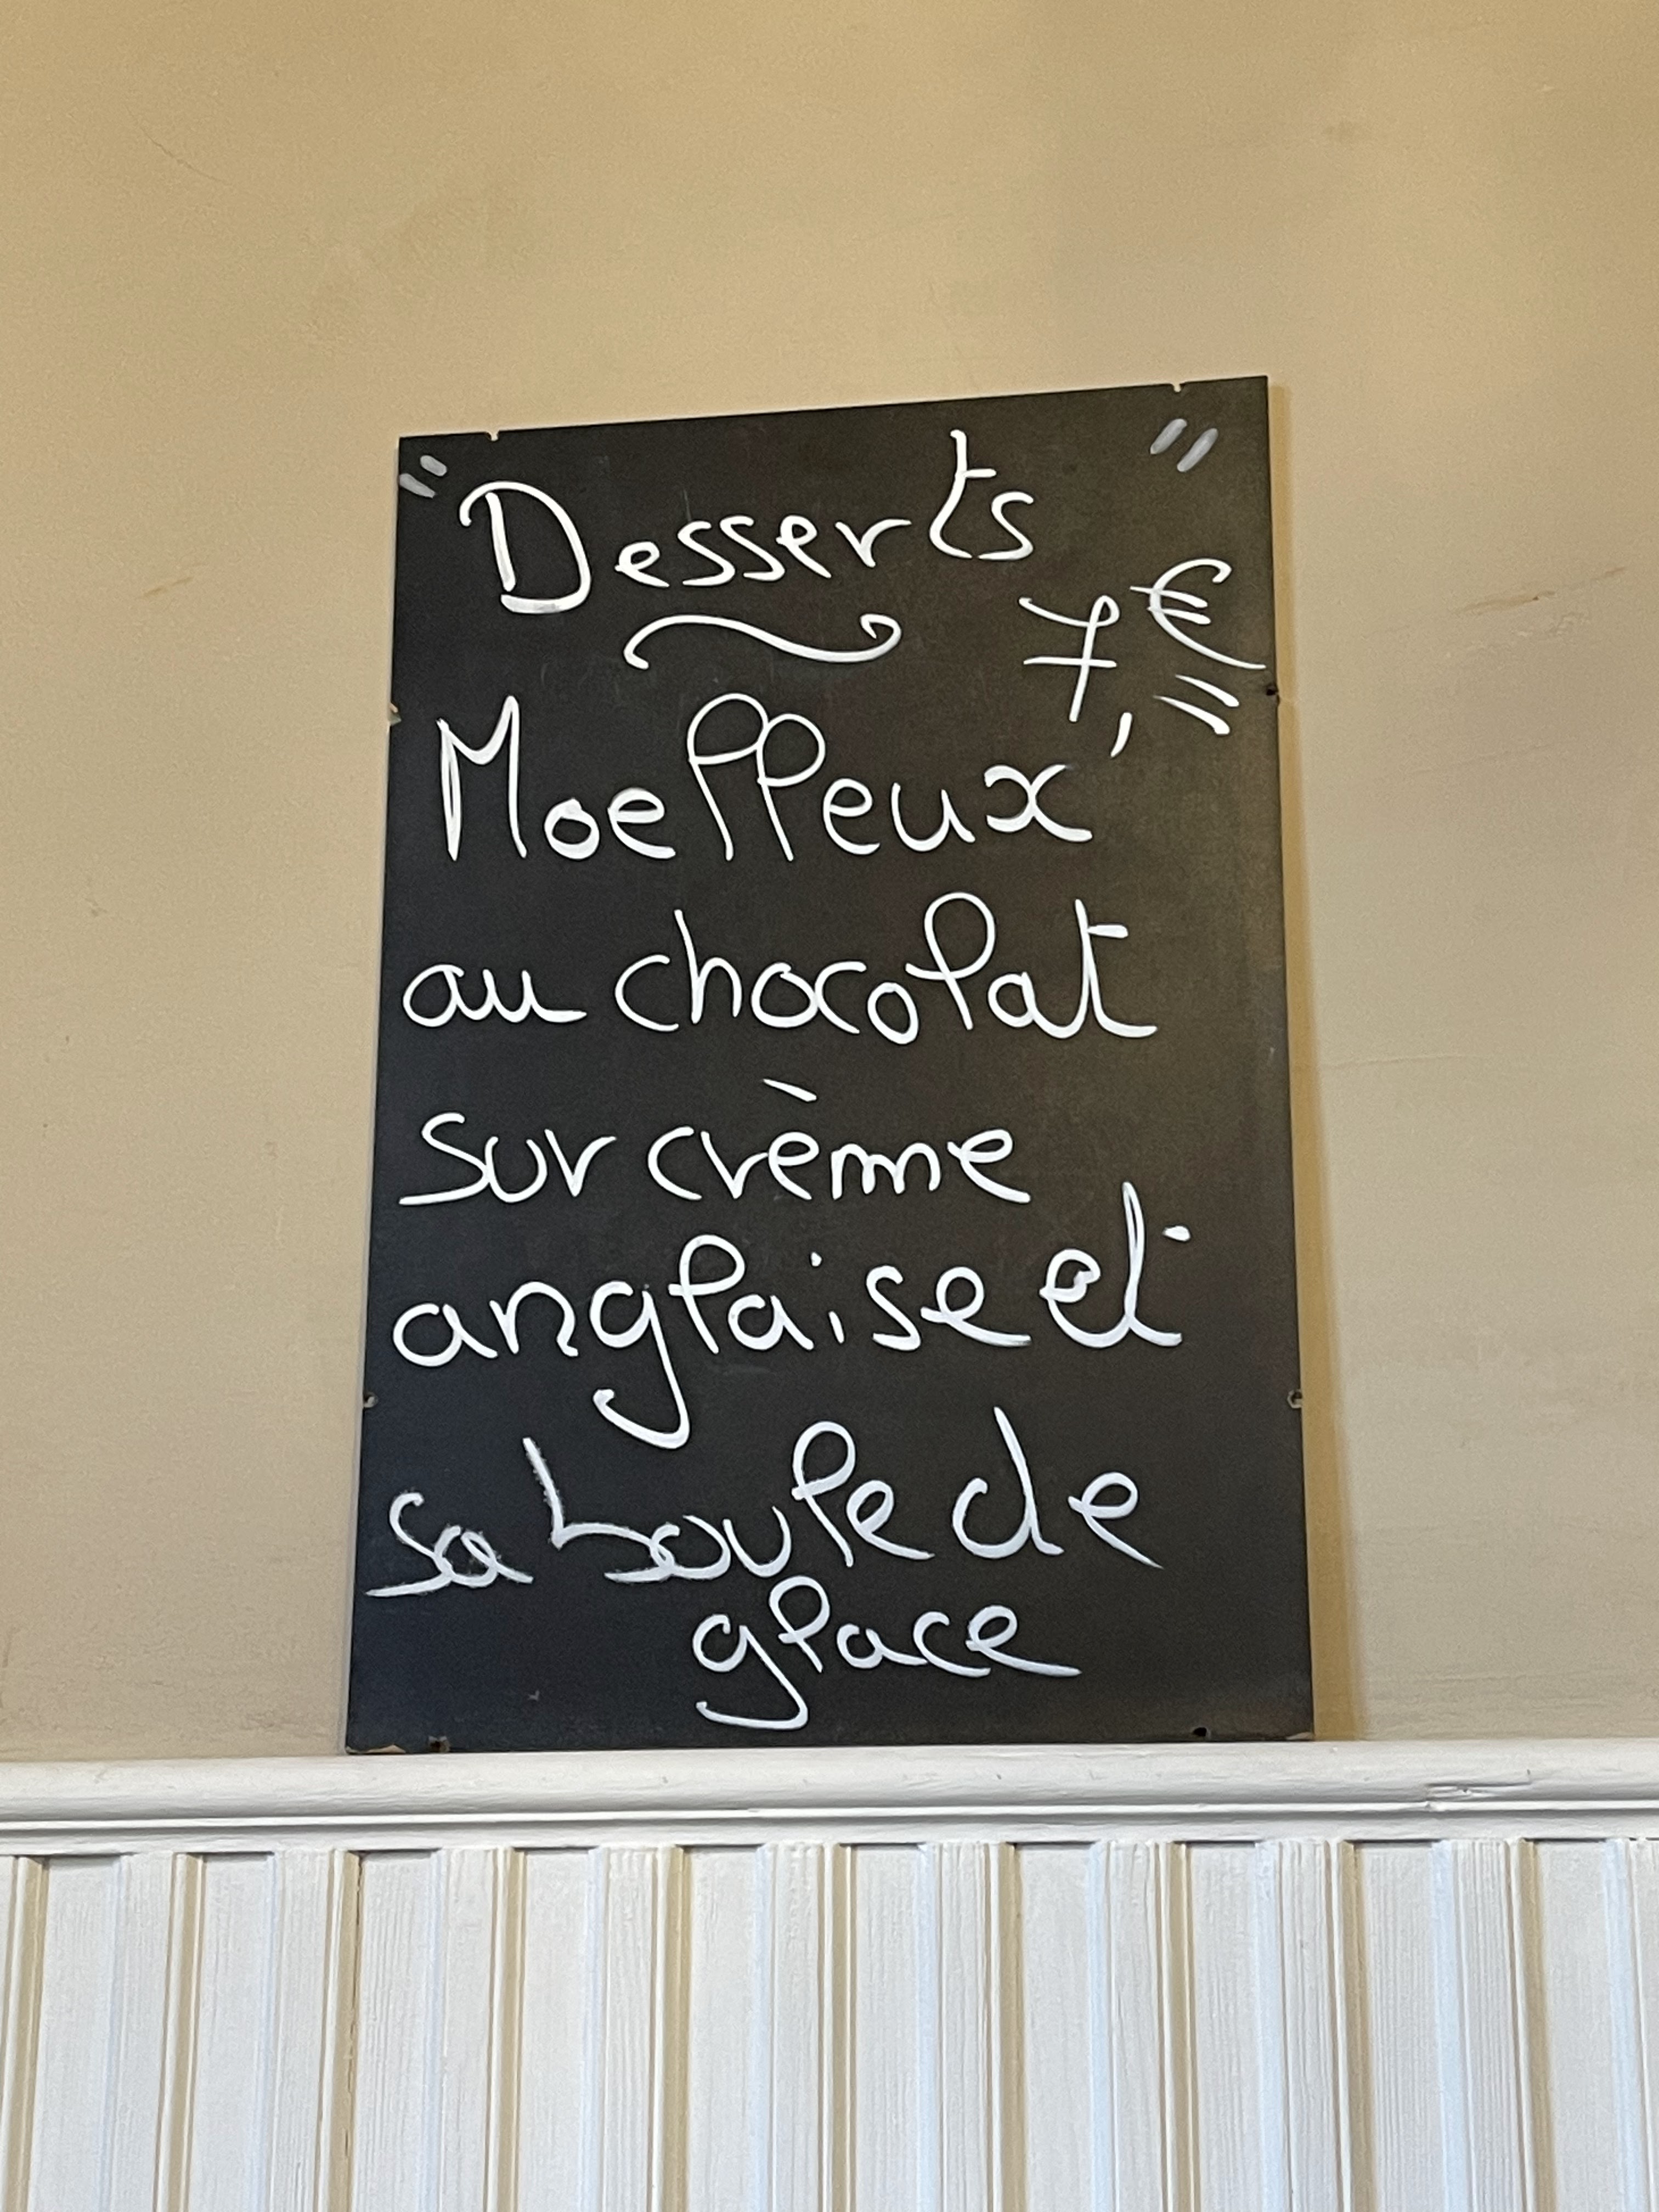 " Desserts "
7,€=
Moelleux
au chocolat
sur crème
anglaise et
sa boule de
glace